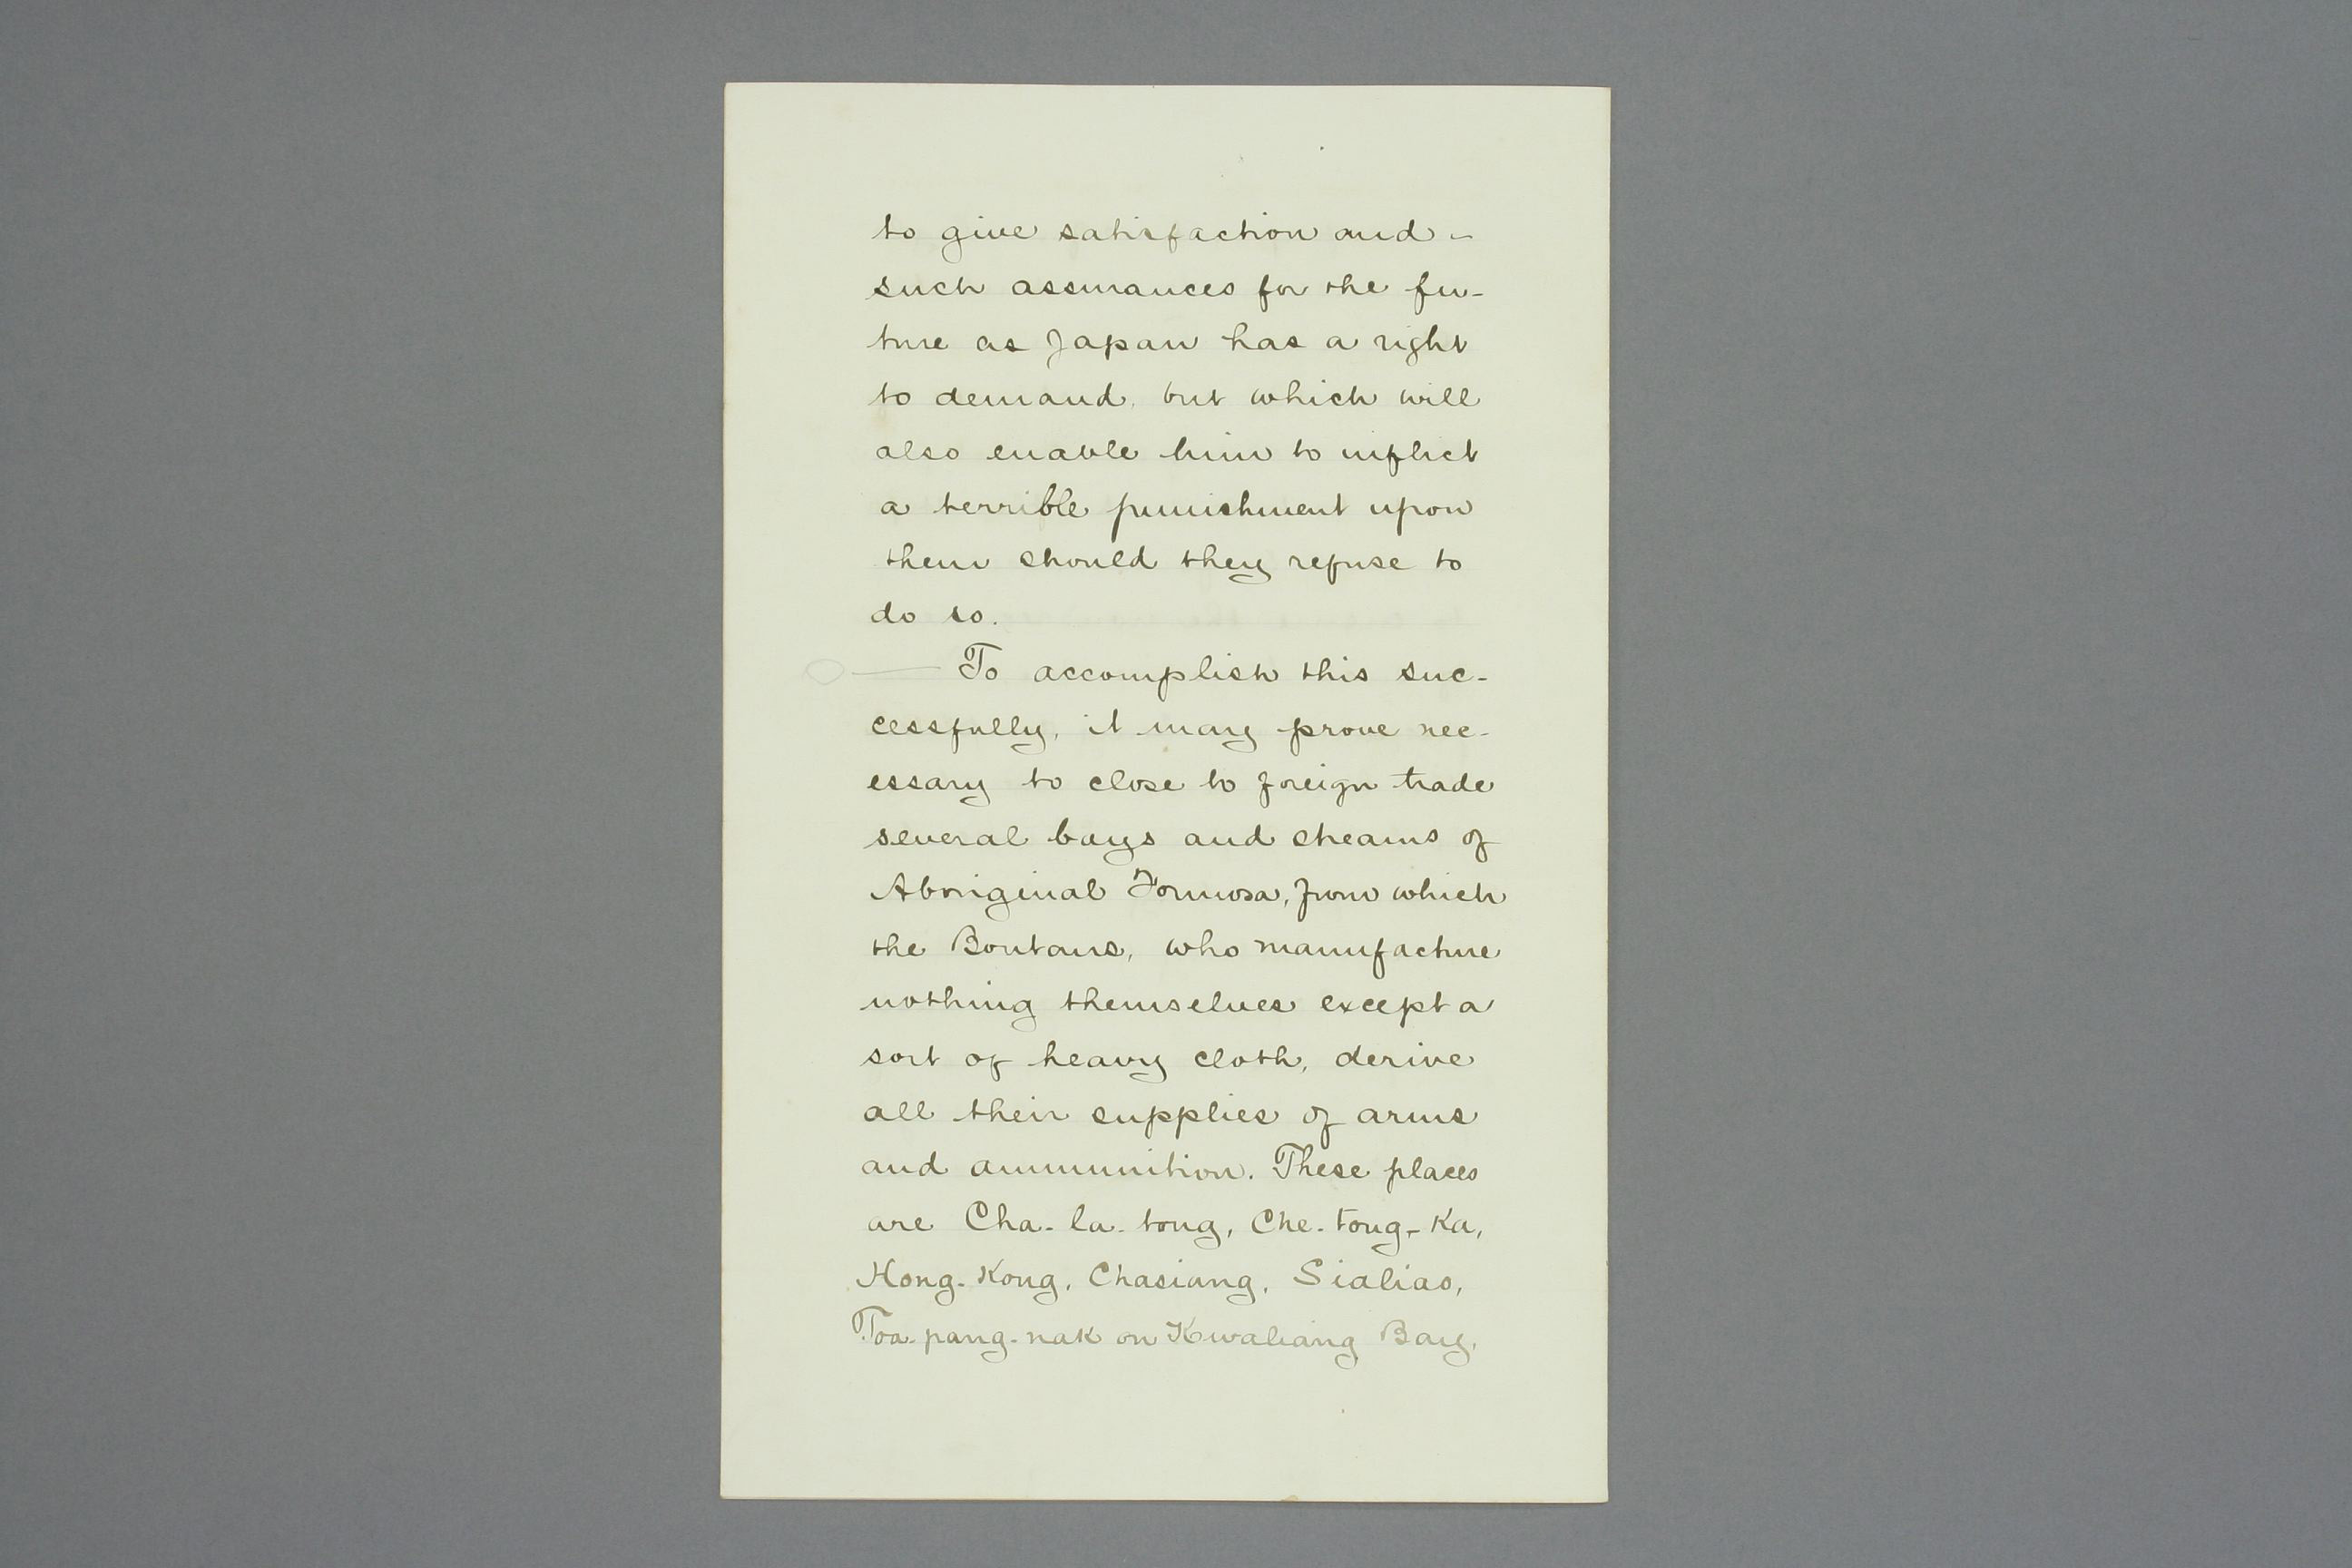 to give satisfaction and -
such assurances for the fu-
ture as Japan has a right
to demand, but which will
also enable him to inflict
a terrible punishment upon
them should they refuse to
do so.
To accomplish this suc-
cessfully, it may prove nec-
essary to close to foreign trade
several bays and streams of
Aboriginal Formosa, from which
the Boutans, who manufacture
nothing themselves except a
sort of heavy cloth, derive
all their supplies of arms
and ammunition. These places
are Cha-la-tong, Che-tong-Ka,
Hong-Kong, Chasiang, Sialiao,
Toa-pang-nak on Kwaliang Bay,